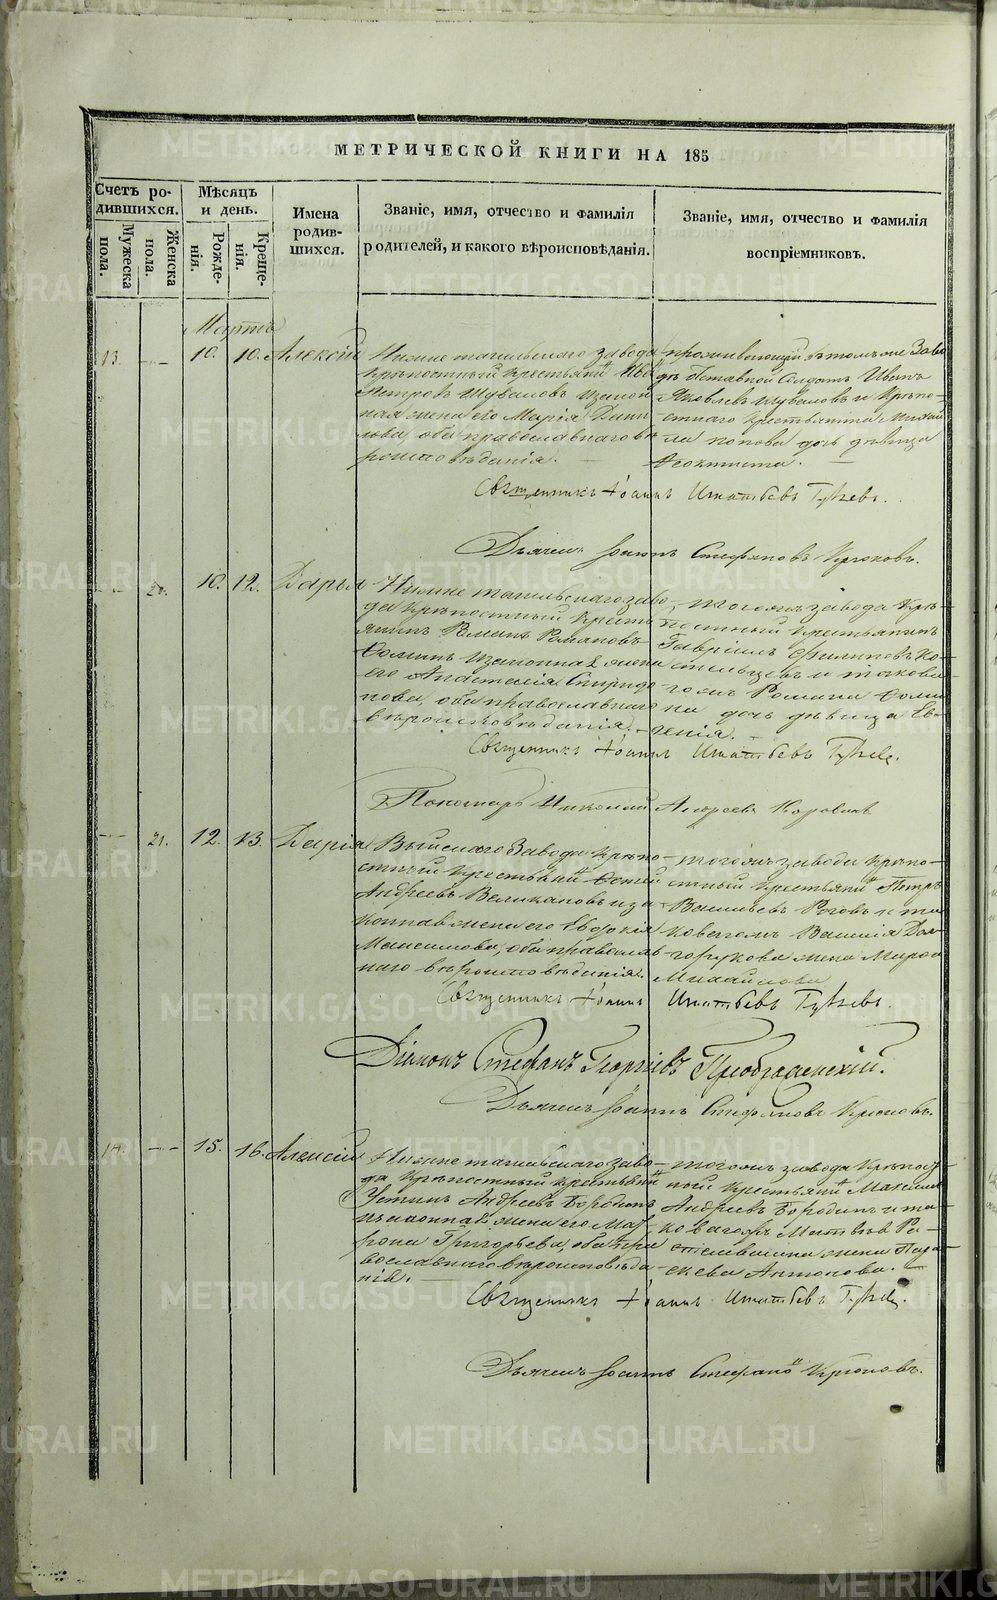 МЕТРИЧЕСКОЙ КНИГИ НА 185
Счетъ родившихся.
Мужеска пола.
Женска пола.
Мѣсяцъ и день.
Рожденія.
Крещенія.
Имена родившихся.
Званіе, имя, отчество и фамилія
родителей, и какого вѣроисповѣданія.
Званіе, имя, отчество и фамилія
воспріемниковъ.
Мартъ
13. 10. 10. Алексій
Нижнетагильскаго завода
крѣпостный крестьянинъ
Петровъ Шуваловъ и закон
ная жена его Марія Дани
лова, оба православнаго вѣ
роисповѣданія.
проживающій въ томъ же Заво
дѣ отставной Солдатъ Иванъ
Яковлевъ Шуваловъ и крѣпо
стнаго крестьянина Михаи
ла Попова дочь дѣвица
Ѳеоктиста.
Священникъ Іоаннъ Игнатьевъ
Дьячекъ Іоаннъ Стефановъ Крюковъ.
20. 10. 12. Дарья
Нижнетагильскаго заво
да крѣпостный кресть
янинъ Романъ Романовъ
Ѳоминъ и законная жена
его Анастасія Спиридо
нова, оба православнаго
вѣроисповѣданія.
тогожъ завода крѣ
постный крестьянинъ
Гавріилъ Филиповъ Ко
стельцевъ и таково
гожъ Романа Ѳоми
на дочь дѣвица Ев
генія.
Священникъ Іоаннъ Игнатьевъ
Пономарь Николай Андреевъ Коровинъ
21. 12. 13. Дарія
Выйскаго Завода крѣпо
стный крестьянинъ
Андреевъ Великановъ и за
конная жена его Евдокія
Максимова, оба православ
наго вѣроисповѣданія.
тогожъ завода крѣпо
стный крестьянинъ Петръ
Васильевъ Роговъ и та
ковагожъ Василія Дол
горукова жена Марѳа
Михайлова
Священникъ Іоаннъ Игнатьевъ
Діаконъ Стефанъ Георгіевъ Преображенскій.
Дьячекъ Іоаннъ Стефановъ Крюковъ.
14. 15. 16. Алексій
Нижнетагильскаго заво
да крѣпостный крестьянинъ
Устинъ Андреевъ Бородинъ
и законная жена его Мат
рона Григорьева, оба пра
вославнаго вѣроисповѣда
нія.
тогожъ завода крѣпост
ный крестьянинъ Максимъ
Андреевъ Бородинъ и та
ковагожъ Матвѣя
жена Пара
скева Антонова.
Священникъ Іоаннъ Игнатьевъ
Дьячекъ Іоаннъ Стефановъ Крюковъ.
METRIKI.GASO-URAL.RU